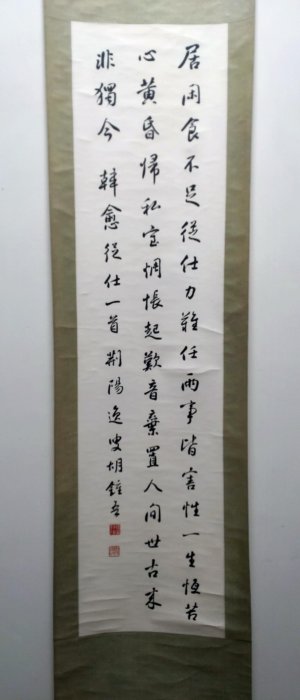 居闲食不足從仕力難任兩事皆害性一生恆苦
心黃昏歸私室惆悵起歎音棄置人間世古來
非獨今 韓愈從仕一首 荆陽逸叟胡鍾吾